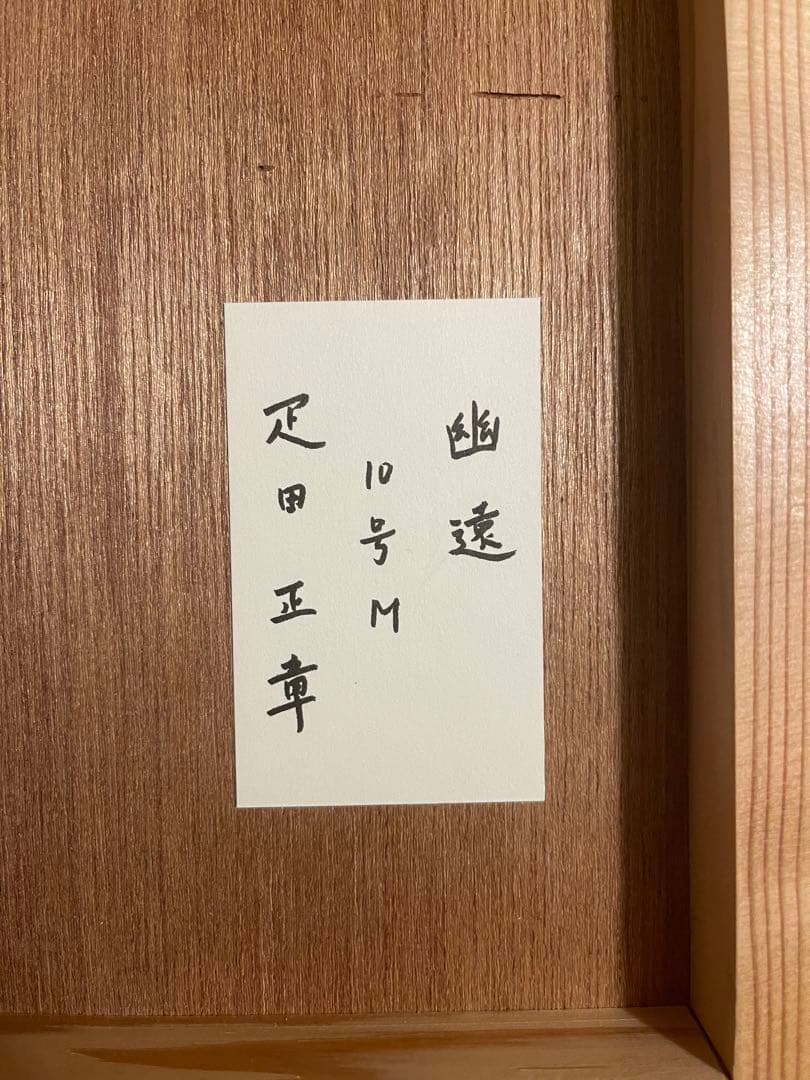 幽遠
10号M
疋田正章